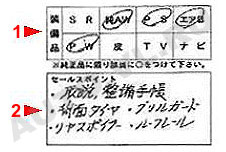 装備品 SR 純AW PS エアB
PW 皮 TV ナビ
※純正品に限り部位に○をつけて下さい。
1
セールスポイント
・取説,整備手帳
・背面タイヤ・グリルガード
・リヤスポイラー・ルーフレール
2